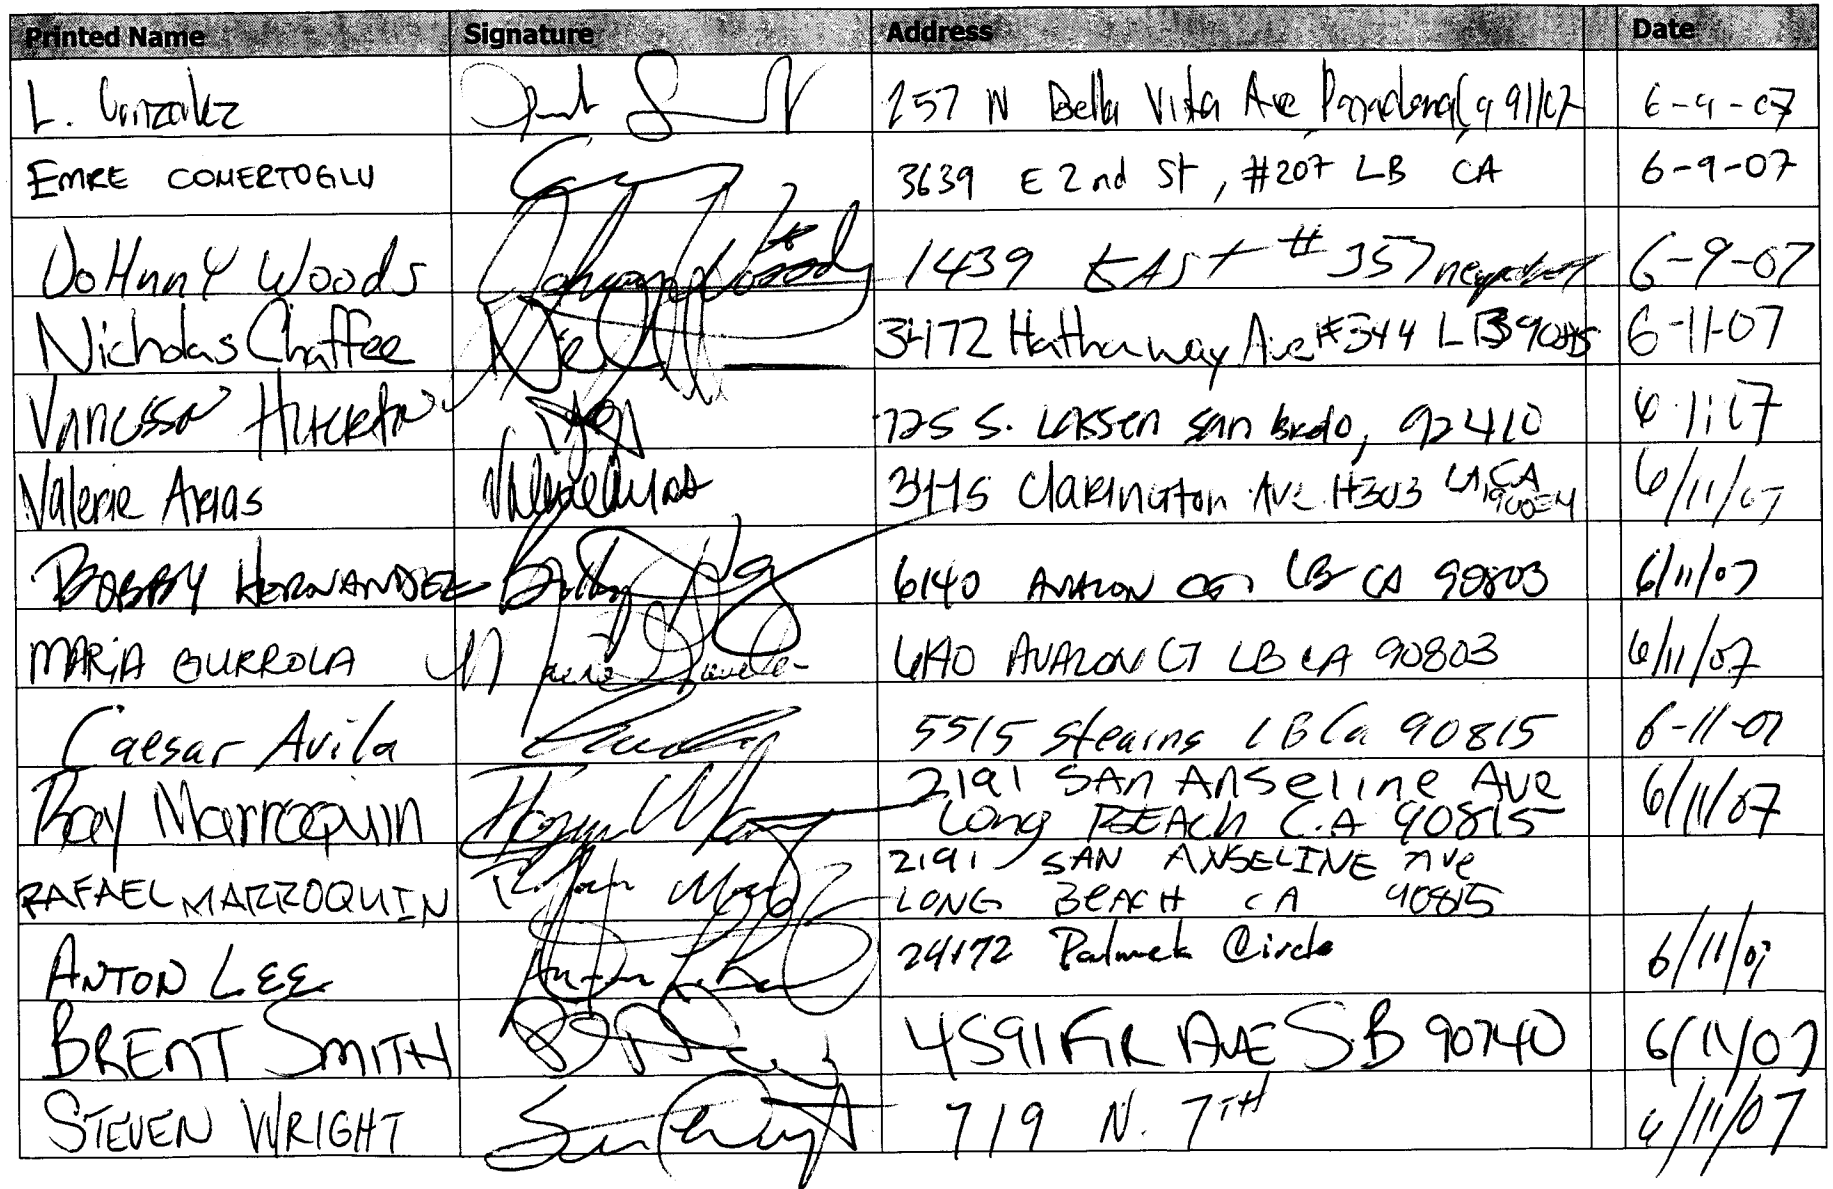 Printed Name Signature Address Date
L. Gonzalez 257 N Bella Vita Ave Pasadena Ca 91107 6-9-07
EMRE COMERTOGLU 3639 E 2nd St, #207 LB CA 6-9-07
JoHnnY Woods Johnny Woods 1439 EASt #357 6-9-07
Nicholas Chaffee Hathaway Ave #344 LB 90815 6-11-07
Vanessa 725 S. LASSEN San Brdo, 92410
Valerie Arias Valerie Arias Clarington Ave #303 LA, CA 6/11/07
BOBBY HERNANDEZ 6140 AVALON CT. LB CA 90803 6/11/07
MARiA GURROLA 6140 AVALON CT LB CA 90803 6/11/07
Caesar Avila 5515 Stearns LB Ca 90815 6-11-07
Ray Marroquin 2191 SAn AnSeline Ave 6/11/07
Long BEACh C.A 90815
2191 SAN ANSELINE AVe
RAFAEL MARROQUIN LONG BEACH CA 90815
ANTON LEE 24172 Circle 6/11/07
BRENT SMITH 4591 FIR AVE S.B 90740 6/11/07
STEVEN WRIGHT 719 N. 7TH 6/11/07